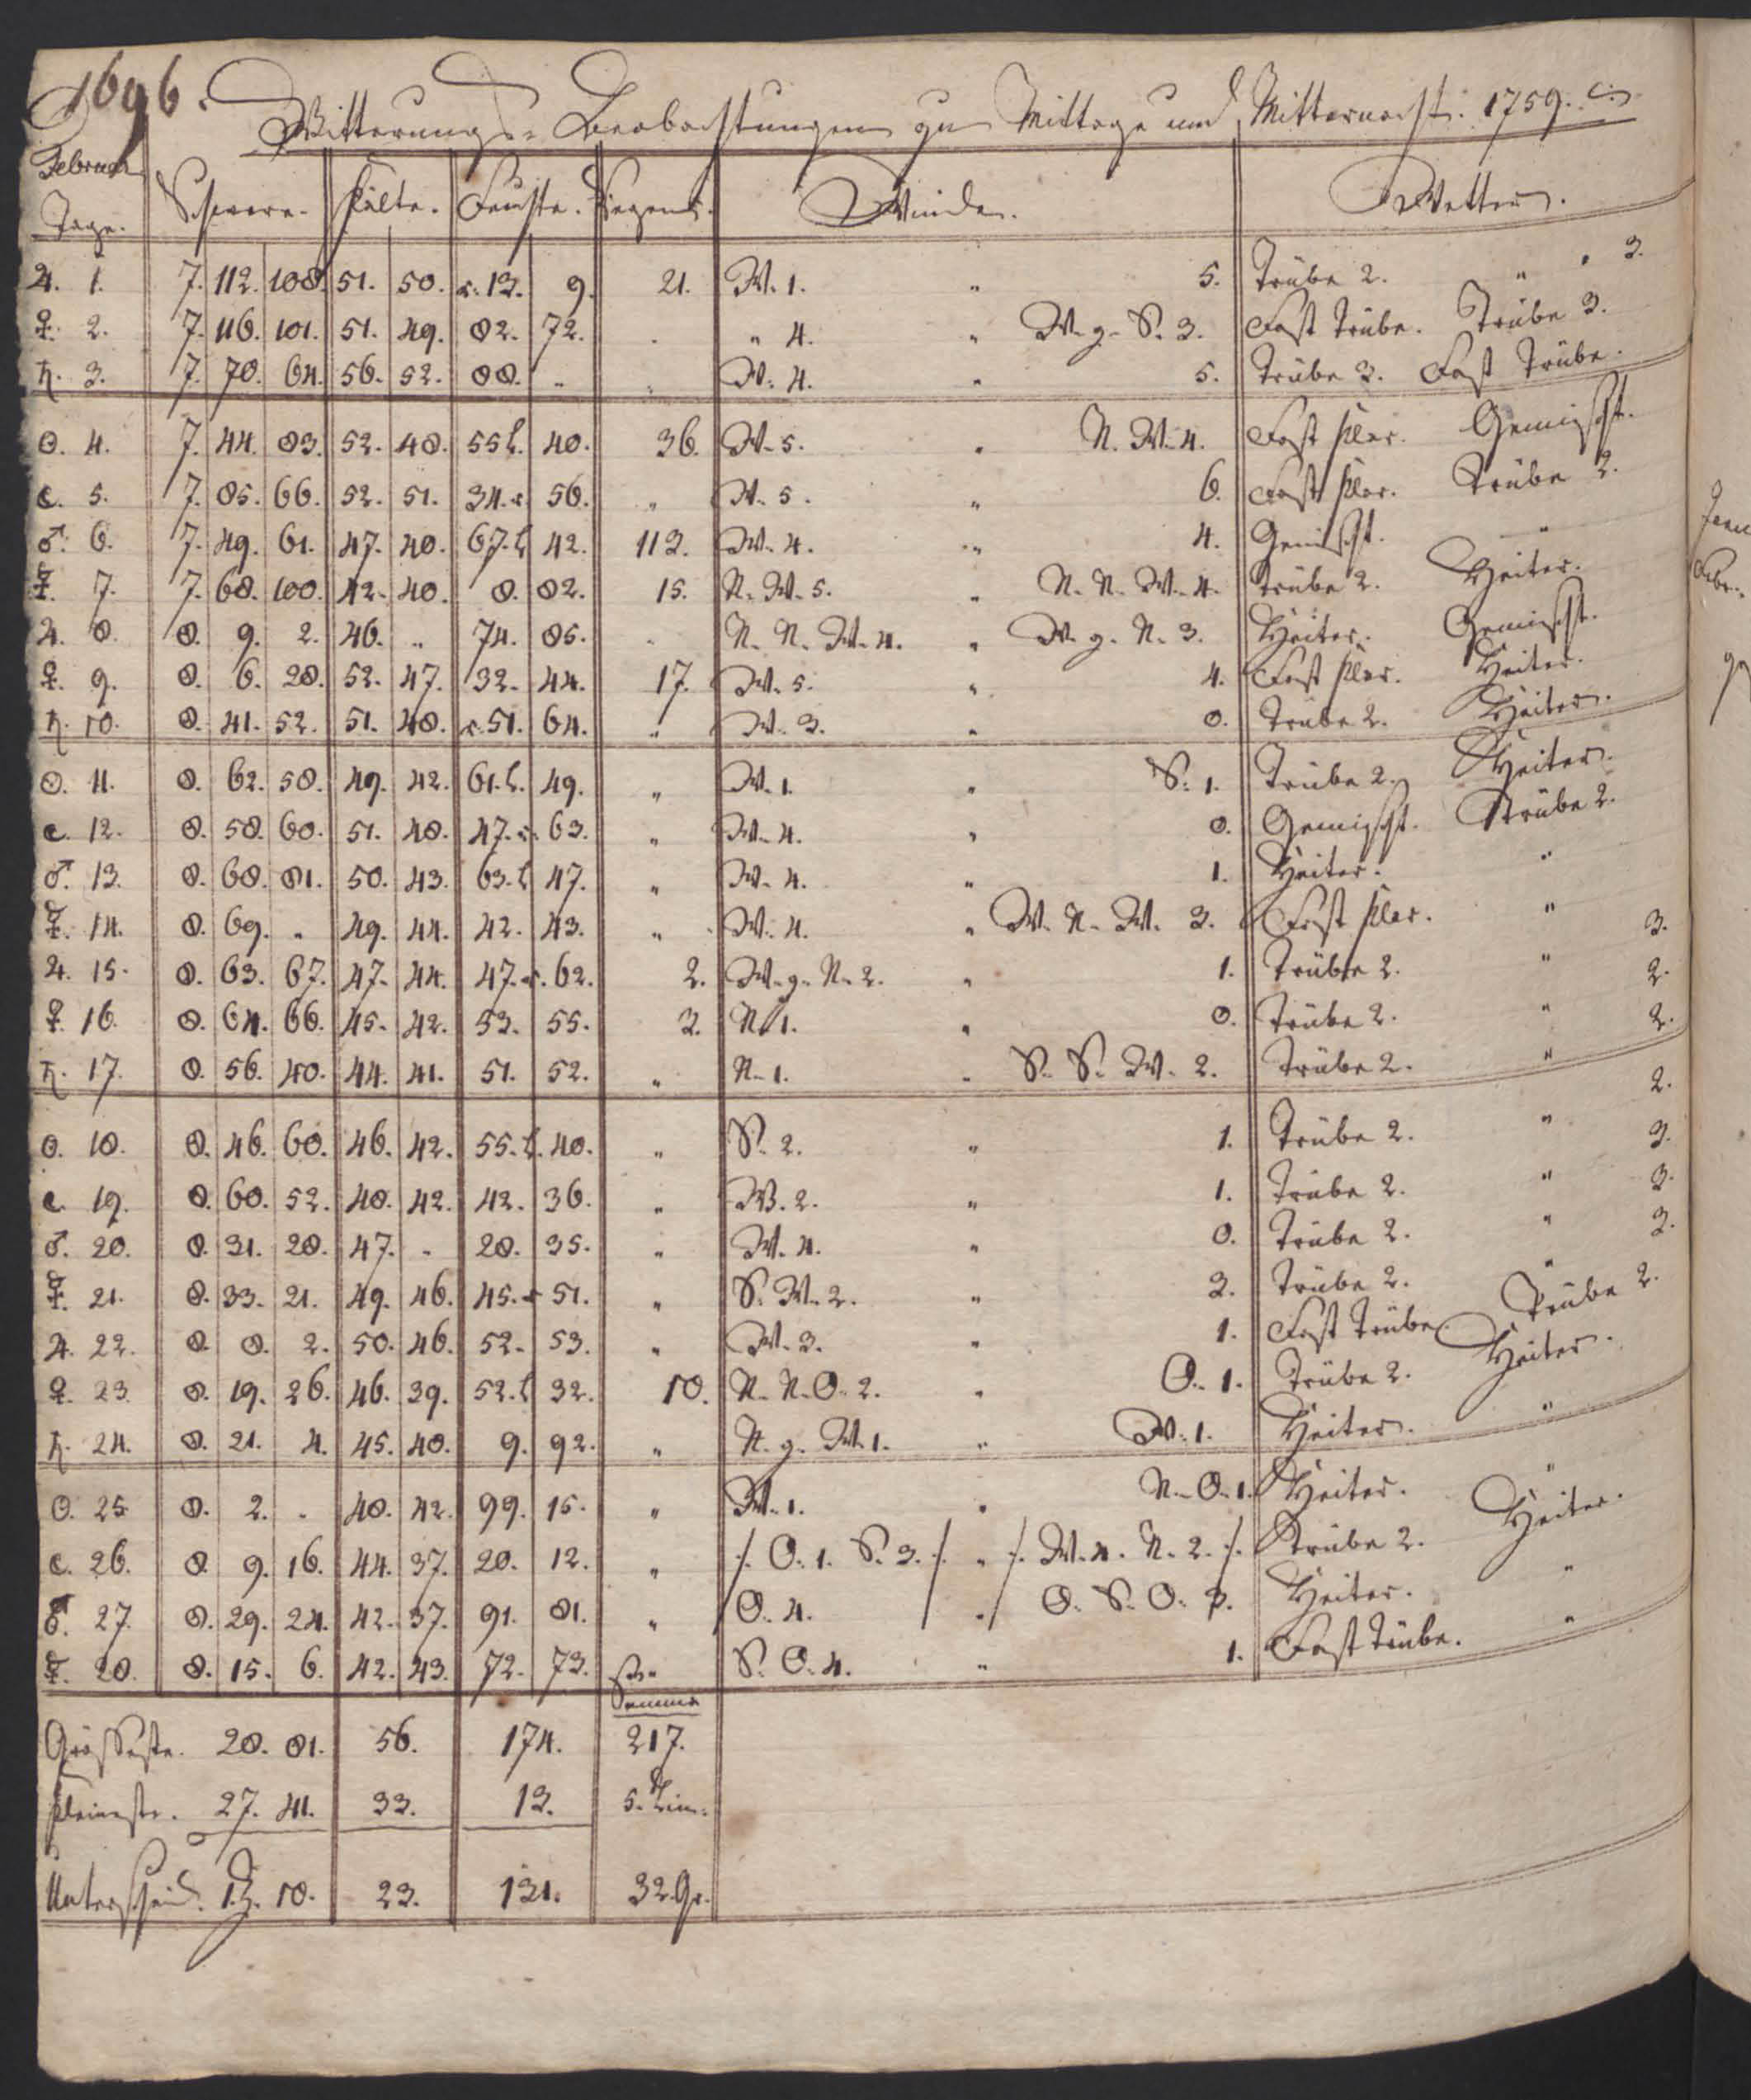 1696.
Witterungs-Beobachtungen zu Mittage und Mitternacht. 1759.
Februar
Tage. Schwere. Kälte. Feuchte. Regens. Winde. Wetter.
♃. 1. 7. 112. 108. 51. 50. r. 13. 9. 21. W. 1. " 5. Trübe 2. " " 3.
♀. 2. 7. 116. 101. 51. 49. 82. 72. " " 4. " W. g. S. 3. Fast Trübe. Trübe 3.
♄. 3. 7. 70. 64. 56. 52. 88. " " W. 4. " 5. Trübe 3. Fast Trübe.
☉. 4. 7. 44. 83. 52. 48. 55 l. 40. 36. W. 5. " N. W. 4. Fast klar. Gemischt.
☾. 5. 7. 85. 66. 52. 51. 34. r 56. " W. 5. " 6. Fast klar. Trübe 2.
♂. 6. 7. 49. 61. 47. 40. 67. l 42. 113. W. 4. " 4. Gemischt. "
☿. 7. 7. 68. 100. 42. 40. 8. 82. 15. N. W. 5. " N. N. W. 4. Trübe 2. Heiter.
♃. 8. 8. 9. 2. 46. " 74. 85. " N. N. W. 4. " W. g. N. 3. Heiter. Gemischt.
♀. 9. 8. 6. 28. 52. 47. 32. 44. 17. W. 5. " 4. Fast klar. Heiter.
♄. 10. 8. 41. 52. 51. 48. r. 51. 64. " W. 3. " 0. Trübe 2. Heiter.
☉. 11. 8. 62. 58. 49. 42. 61. l. 49. " W. 1. " S. 1. Trübe 2. Heiter.
☾. 12. 8. 58. 60. 51. 48. 47. r. 63. " W. 4. " 0. Gemischt. Trübe 2.
♂. 13. 8. 68. 81. 50. 43. 63. l 47. " W. 4. " 1. Heiter. "
☿. 14. 8. 69. " 49. 44. 42. 43. " W. 4. " W. N. W. 3. Fast klar. "
♃. 15. 8. 63. 67. 47. 44. 47. r. 62. 2. W. g. N. 2. " 1. Trübe 2. " 3.
♀. 16. 8. 64. 66. 45. 42. 53. 55. 3. N. 1. " 0. Trübe 2. " 2.
♄. 17. 8. 56. 40. 44. 41. 51. 52. " N. 1. " S. S. W. 2. Trübe 2. " 2.
☉. 18. 8. 46. 60. 46. 42. 55. l. 40. " S. 2. " 1. Trübe 2. " 2.
☾. 19. 8. 60. 52. 48. 42. 42. 36. " W. 2. " 1. Trübe 2. " 3.
♂. 20. 8. 31. 28. 47. " 28. 35. " W. 4. " 0. Trübe 2. " 3.
☿. 21. 8. 33. 21. 49. 46. 45. r 51. " S. W. 2. " 3. Trübe 2. " 3.
♃. 22. 8. 8. 2. 50. 46. 52. 53. " W. 3. " 1. Fast Trübe. Trübe 2.
♀. 23. 8. 19. 26. 46. 39. 52. l 32. 10. N. N. O. 2. " O. 1. Trübe 2. Heiter.
♄. 24. 8. 21. 4. 45. 40. 9. 92. " N. g. W. 1. " W. 1. Heiter. "
☉. 25 8. 2. " 40. 42. 99. 15. " W. 1. " N. O. 1. Heiter. "
☾. 26. 8. 9. 16. 44. 37. 20. 12. " /. O. 1. S. 3. / " /. W. 4. N. 2. /. Trübe 2. Heiter.
♂. 27. 8. 29. 24. 42. 37. 91. 81. " O. 4. " O. S. O. 3. Heiter. "
☿. 28. 8. 15. 6. 42. 43. 72. 73. " S. O. 4. " 1. Fast Trübe. "
Summa
Grösseste. 28. 81. 56. 174. 217.
Kleineste. 27. 41. 33. 13. 5. Lin.
Unterscheid. 1. Z. 10. 23. 131. 32. Gr.